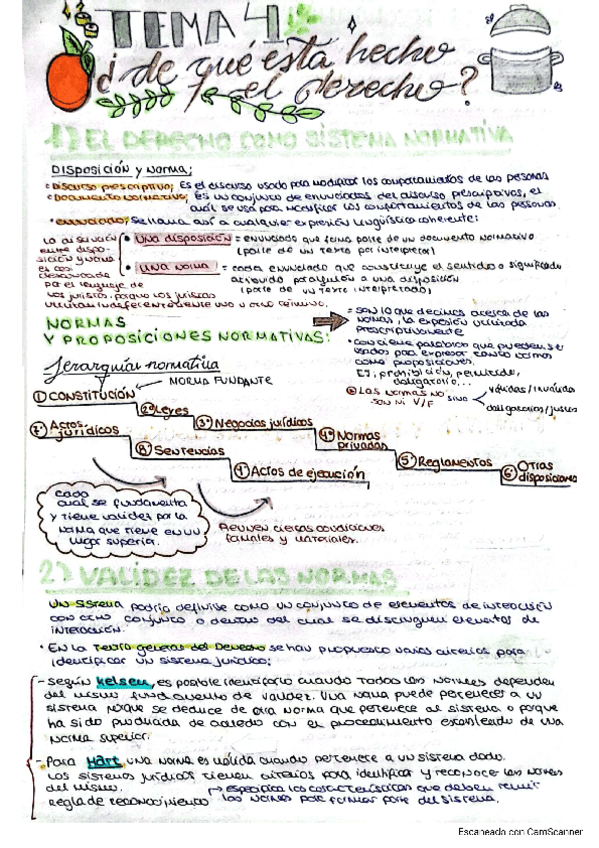 TEMA 4
¿de qué está hecho
el derecho?
1) EL DERECHO COMO SISTEMA NORMATIVA
Disposición y norma:
• Discurso prescriptivo; Es el discurso usado para modificar los comportamientos de las personas
• Documento normativo; Es un conjunto de enunciados del discurso prescriptivos, el
cual se usa para modificar los comportamientos de las personas
• enunciado; se llama así a cualquier expresión lingüística coherente:
La distinción
entre dispo-
sición y norma
es casi
desconocida
por el lenguaje de
los juristas, porque los juristas
utilizan indiferentemente uno u otro término.
• Una disposición = enunciado que forma parte de un documento normativo
(parte de un texto por interpretar)
• Una norma = cada enunciado que constituye el sentido o significado
atribuido por alguien a una disposición
(parte de un texto interpretado)
NORMAS
Y PROPOSICIONES NORMATIVAS:
= son lo que decimos acerca de las
normas, la expresión utilizada
prescriptivamente
• Contiene palabras que pueden ser
usadas para expresar tanto normas
como proposiciones.
EJ: prohibición, permitido,
obligatorio,...
Las normas no
son ni V/F
sino
válidas/inválida
obligatorias/justas
Jerarquía normativa
NORMA FUNDANTE
1º CONSTITUCIÓN
2º Leyes
3º Negocios jurídicos
4º Normas
privadas
5º Reglamentos
6º Otras
disposiciones
7º Actos
jurídicos
8º Sentencias
9º Actos de ejecución
Cada
cual se fundamenta
y tiene validez por la
norma que tiene en un
lugar superior.
Reunen ciertas condiciones
formales y materiales.
2) VALIDEZ DE LAS NORMAS
Un sistema podría definirse como un conjunto de elementos de interacción
con otro conjunto o dentro del cual se distinguen elementos de
interacción.
• En la Teoría general del Derecho se han propuesto varios criterios para
identificar un sistema jurídico:
- Según Kelsen, es posible identificarlo cuando todas las normas dependen
del mismo fundamento de validez. Una norma puede pertenecer a un
sistema porque se deduce de otra norma que pertenece al sistema o porque
ha sido producida de acuerdo con el procedimiento establecido de una
norma superior.
- Para Hart, una norma es válida cuando pertenece a un sistema dado.
Los sistemas jurídicos tienen criterios para identificar y reconocer las normas
del mismo.
regla de reconocimiento
especifica las características que deben reunir
las normas para formar parte del sistema.
Escaneado con CamScanner